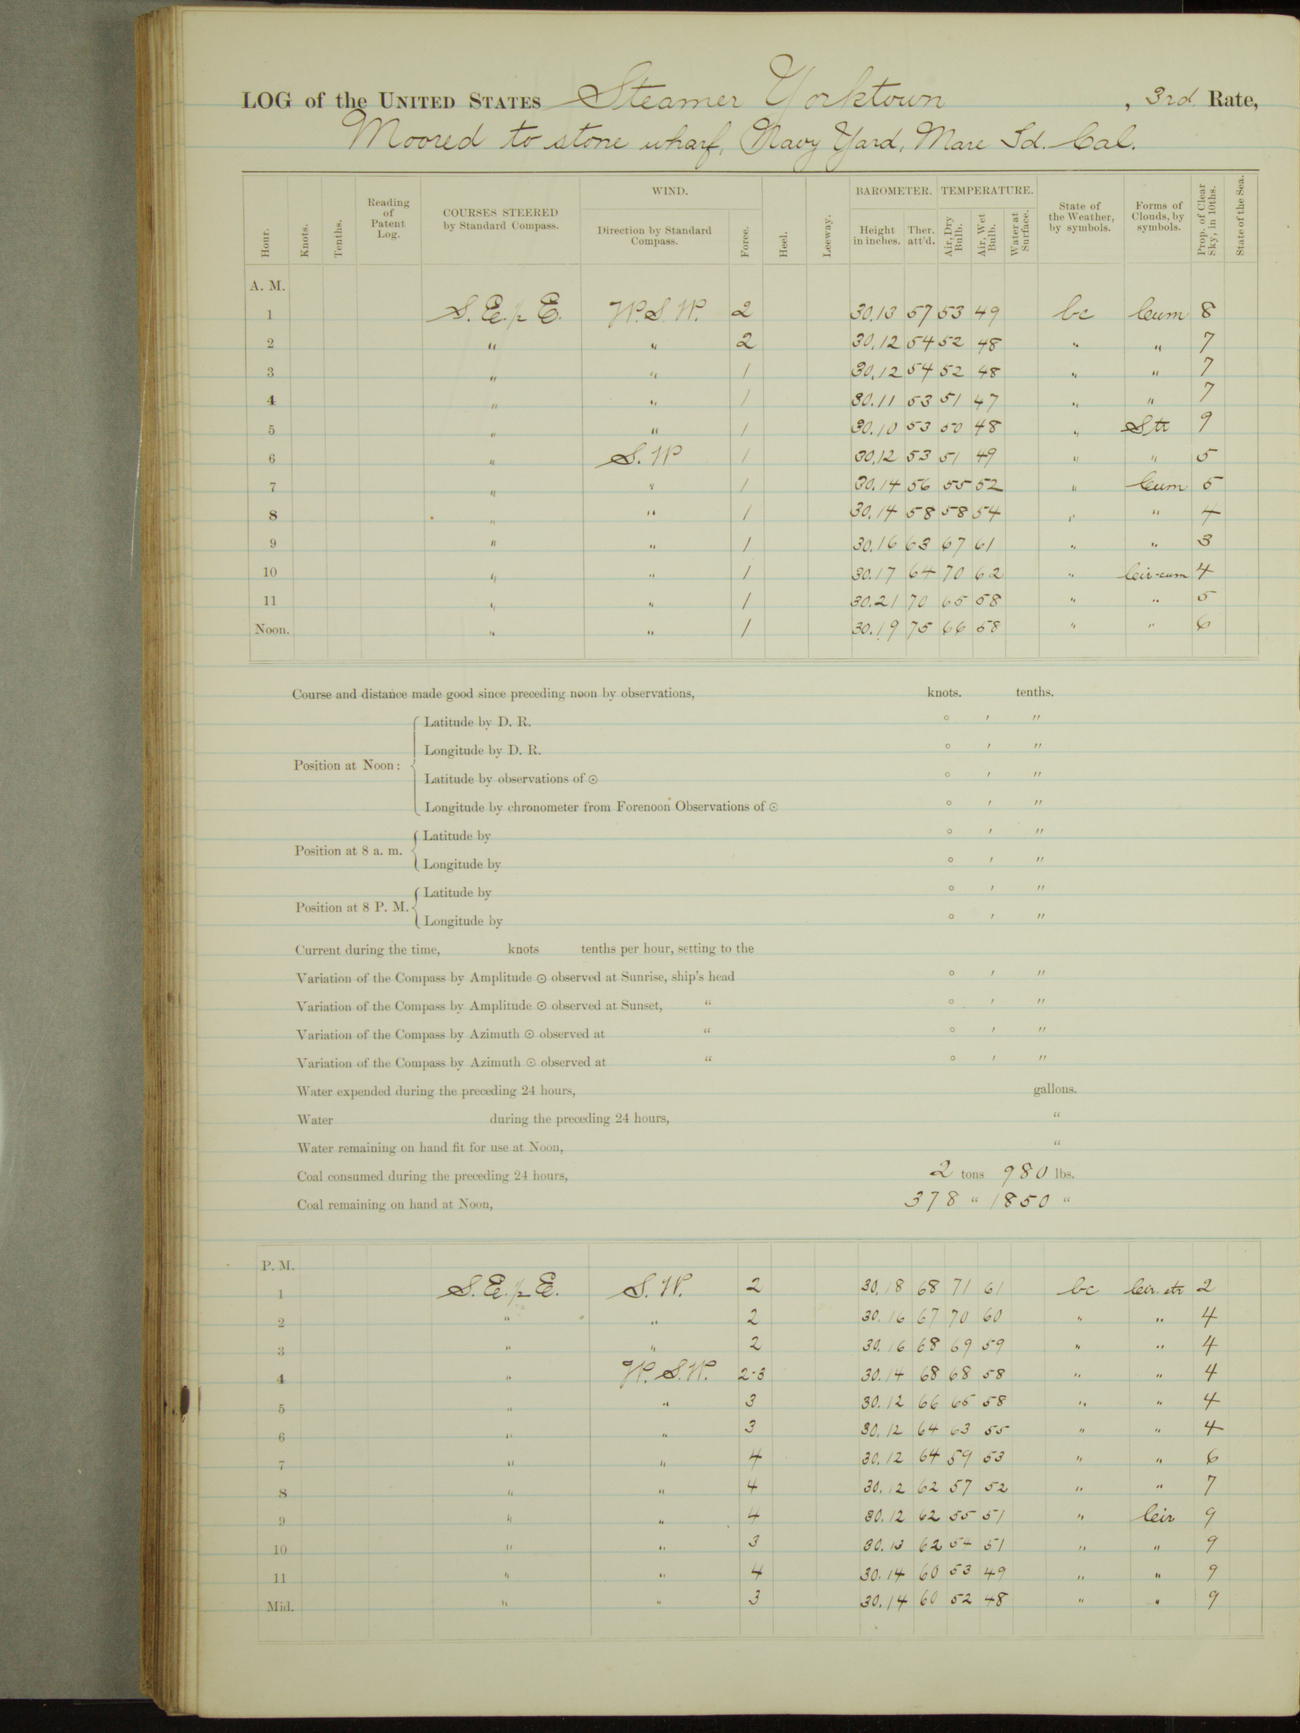 LOG of the UNITED STATES Steamer Yorktown, 3rd Rate,
Moored to stone wharf, Navy Yard, Mare Id. Cal.
Hour. Knots. Tenths. Reading of Patent Log. COURSES STEERED by Standard Compass. WIND. Direction by Standard Compass. Force. Heel. Leeway. BAROMETER. Height in inches. Ther. att'd. TEMPERATURE. Air, Dry Bulb. Air, Wet Bulb. Water at Surface. State of the Weather, by symbols. Forms of Clouds, by symbols. Prop. of Clear Sky, in 10ths. State of the Sea.
A. M.
1 S. E. p E. W. S. W. 2 30.13 57 53 49 bc Cum 8
2 " " 2 30.12 54 52 48 " " 7
3 " " 1 30.12 54 52 48 " " 7
4 " " 1 30.11 53 51 47 " " 7
5 " " 1 30.10 53 50 48 " Str 9
6 " S. W 1 30.12 53 51 49 " " 5
7 " " 1 30.14 56 55 52 " Cum 5
8 " " 1 30.14 58 58 54 " " 4
9 " " 1 30.16 63 67 61 " " 3
10 " " 1 30.17 64 70 62 " Cir-cum 4
11 " " 1 30.21 70 65 58 " " 5
Noon. " " 1 30.19 75 66 58 " " 6
Course and distance made good since preceding noon by observations, knots. tenths.
Position at Noon: Latitude by D. R. ° ′ ″
Longitude by D. R. ° ′ ″
Latitude by observations of ☉ ° ′ ″
Longitude by chronometer from Forenoon Observations of ☉ ° ′ ″
Position at 8 a. m. Latitude by ° ′ ″
Longitude by ° ′ ″
Position at 8 P. M. Latitude by ° ′ ″
Longitude by ° ′ ″
Current during the time, knots tenths per hour, setting to the
Variation of the Compass by Amplitude ☉ observed at Sunrise, ship's head ° ′ ″
Variation of the Compass by Amplitude ☉ observed at Sunset, " ° ′ ″
Variation of the Compass by Azimuth ☉ observed at " ° ′ ″
Variation of the Compass by Azimuth ☉ observed at " ° ′ ″
Water expended during the preceding 24 hours, gallons.
Water during the preceding 24 hours, "
Water remaining on hand fit for use at Noon, "
Coal consumed during the preceding 24 hours, 2 tons 980 lbs.
Coal remaining on hand at Noon, 378 " 1850 "
P. M.
1 S. E. p E. S. W. 2 30.18 68 71 61 bc Cir. str 2
2 " " 2 30.16 67 70 60 " " 4
3 " " 2 30.16 68 69 59 " " 4
4 " W. S. W. 2-3 30.14 68 68 58 " " 4
5 " " 3 30.12 66 65 58 " " 4
6 " " 3 30.12 64 63 55 " " 4
7 " " 4 30.12 64 59 53 " " 6
8 " " 4 30.12 62 57 52 " " 7
9 " " 4 30.12 62 55 51 " Cir 9
10 " " 3 30.13 62 54 51 " " 9
11 " " 4 30.14 60 53 49 " " 9
Mid. " " 3 30.14 60 52 48 " " 9